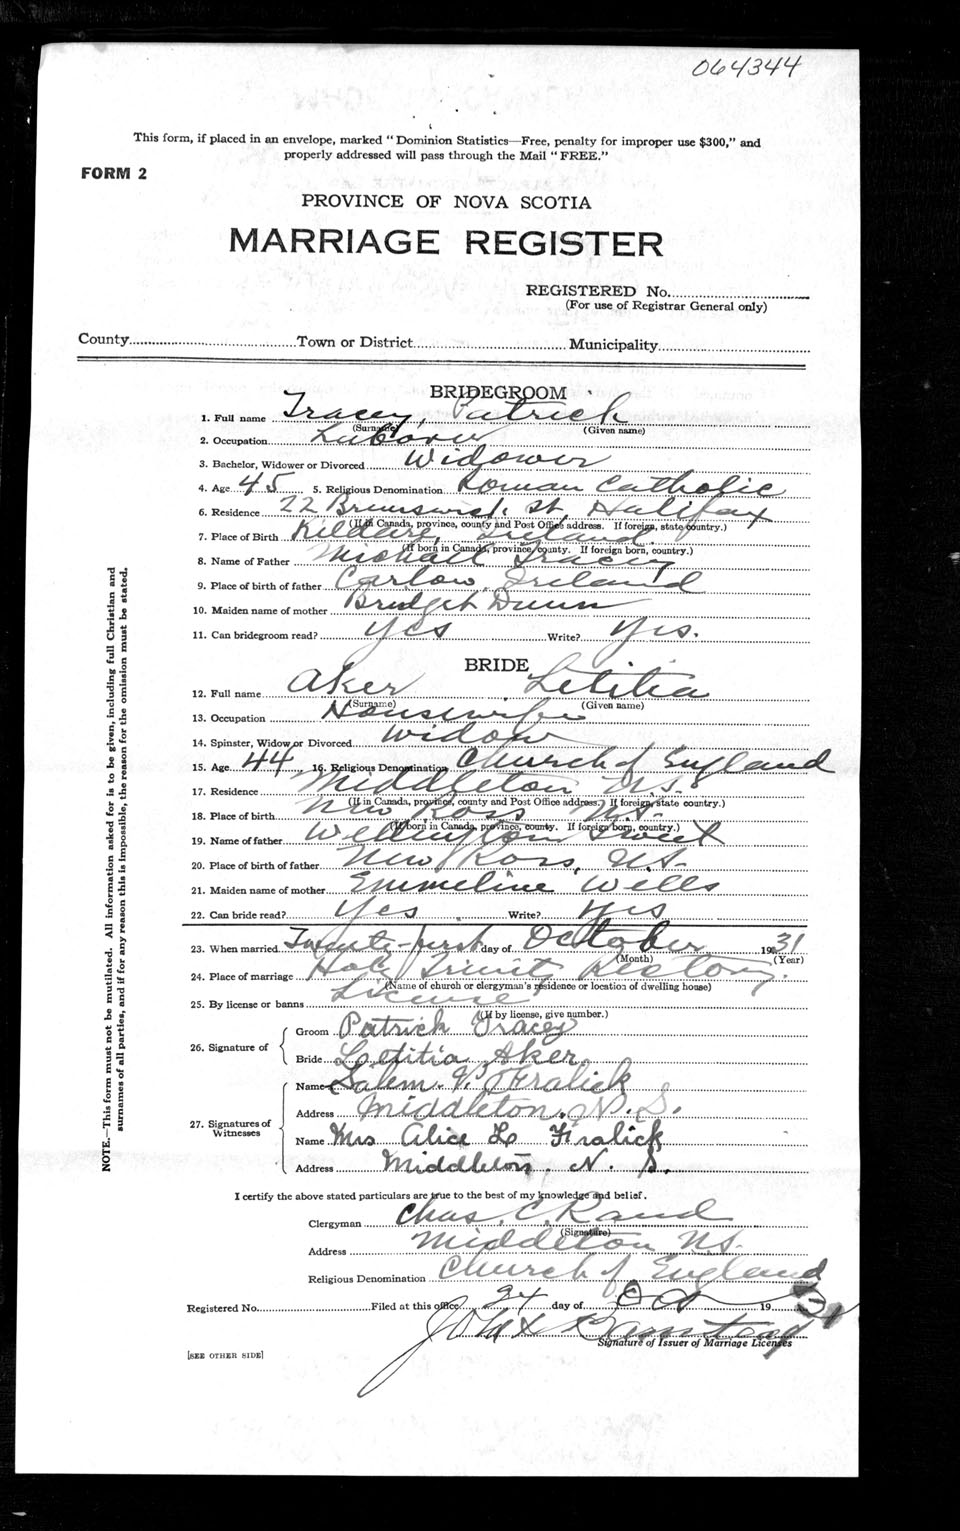 064344
This form, if placed in an envelope, marked "Dominion Statistics—Free, penalty for improper use $300," and
properly addressed will pass through the Mail "FREE."
FORM 2
PROVINCE OF NOVA SCOTIA
MARRIAGE REGISTER
REGISTERED No.
(For use of Registrar General only)
County Town or District Municipality
BRIDEGROOM
1. Full name Tracey, Patrick
(Surname) (Given name)
2. Occupation
3. Bachelor, Widower or Divorced Widower
4. Age 45 5. Religious Denomination Roman Catholic
6. Residence 22 Brunswick St, Halifax
(If in Canada, province, county and Post Office address. If foreign, state country.)
7. Place of Birth Kildare, Ireland
(If born in Canada, province, county. If foreign born, country.)
8. Name of Father Michael Tracey
9. Place of birth of father Carlow, Ireland
10. Maiden name of mother Bridget Dunn
11. Can bridegroom read? Yes Write? Yes.
BRIDE
12. Full name Aker Letitia
(Surname) (Given name)
13. Occupation Housewife
14. Spinster, Widow or Divorced Widow
15. Age 44 16. Religious Denomination Church of England
17. Residence Middleton N.S.
(If in Canada, province, county and Post Office address.) If foreign, state country.)
18. Place of birth New Ross N.S.
(If born in Canada, province, county. If foreign born, country.)
19. Name of father Wellington
20. Place of birth of father New Ross, N.S.
21. Maiden name of mother Emmeline Wells
22. Can bride read? Yes Write? Yes
23. When married Twenty-first day of October 1931
(Month) (Year)
24. Place of marriage Holy Trinity Rectory.
(Name of church or clergyman's residence or location of dwelling house)
25. By license or banns License
(If by license, give number.)
26. Signature of
Groom Patrick Tracey
Bride Letitia Aker
27. Signatures of Witnesses
Name Salem V. Fralick
Address Middleton, N. S.
Name Mrs Alice L. Fralick
Address Middleton. N. S.
I certify the above stated particulars are true to the best of my knowledge and belief.
Clergyman Chas. C. Rand
(Signature)
Address Middleton N.S.
Religious Denomination Church of England
Registered No. Filed at this office 24 day of Oct 19
Signature of Issuer of Marriage Licenses
[SEE OTHER SIDE]
NOTE.—This form must not be mutilated. All information asked for is to be given, including full Christian and
surnames of all parties, and if for any reason this is impossible, the reason for the omission must be stated.